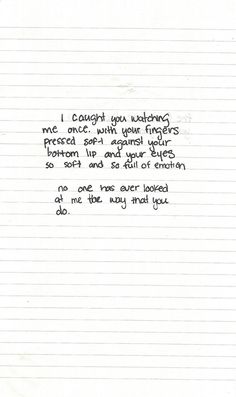 I caught you watching
me once. with your fingers
pressed soft against your
bottom lip and your eyes
so soft and so full of emotion
no one has ever looked
at me the way that you
do.